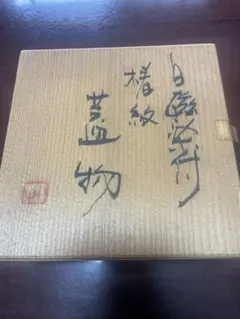 白磁染付
椿紋
蓋物